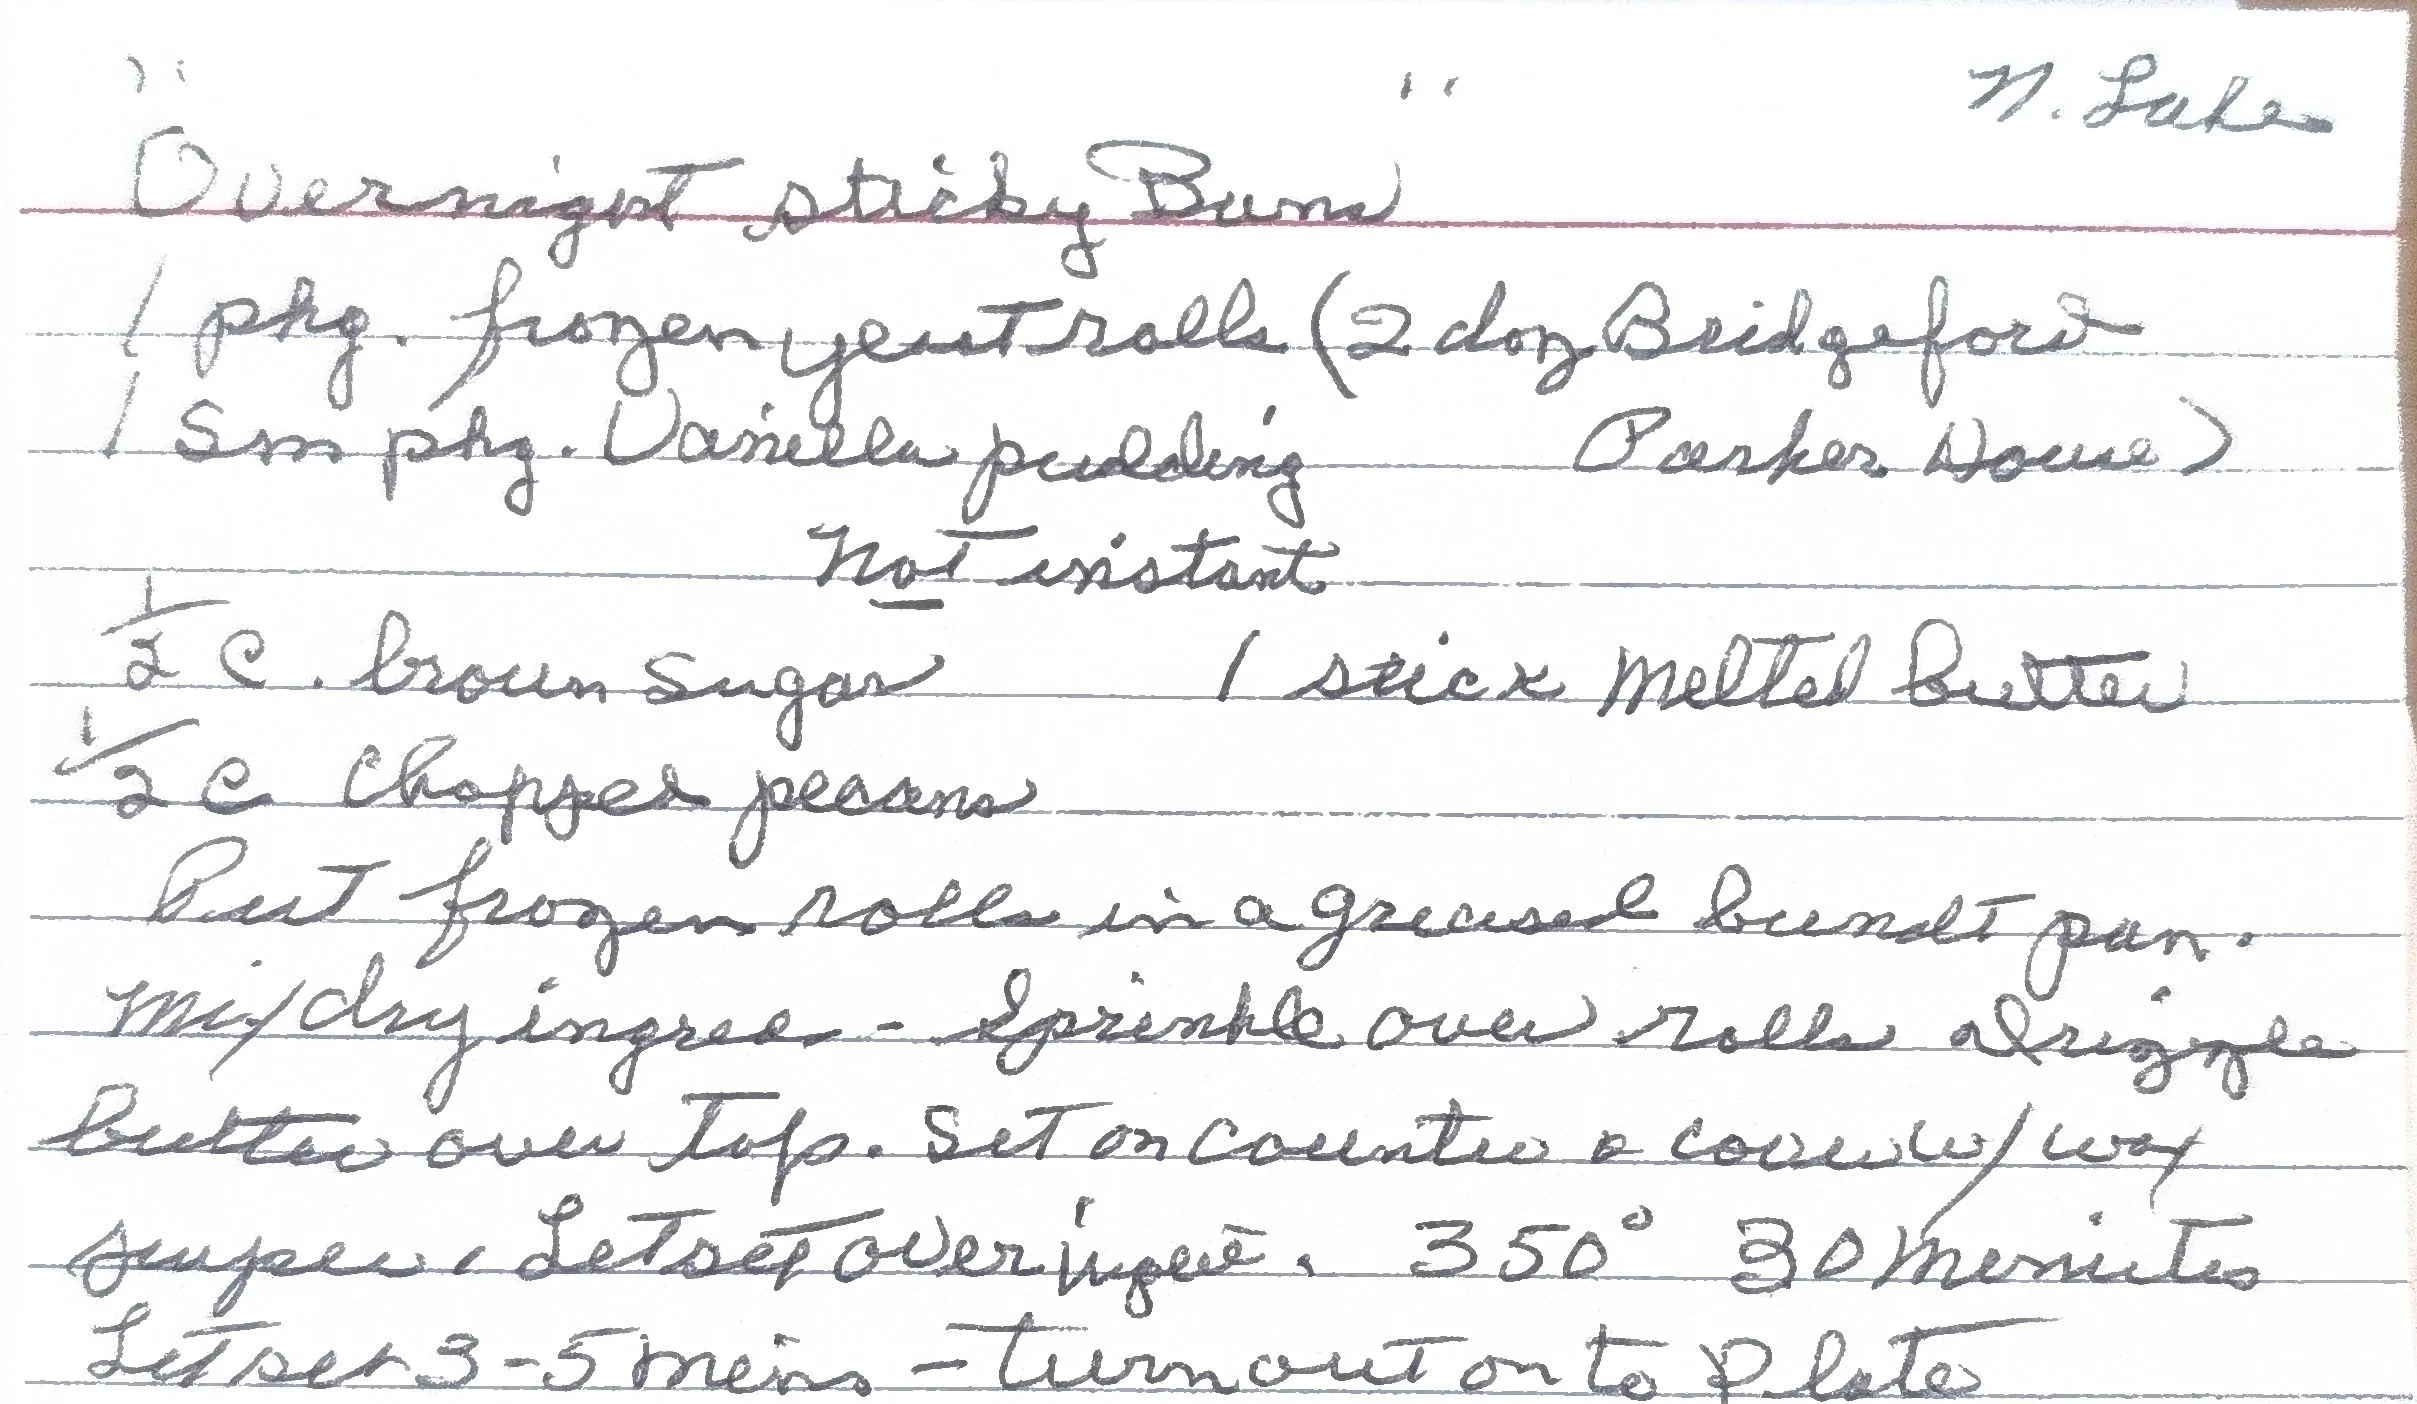 N. Lake
"Overnight Sticky Buns"
1 pkg. frozen yeast rolls (2 doz Bridgeford
Parker House)
1 sm pkg. Vanilla pudding
Not instant
1/2 C. brown sugar 1 stick Melted butter
1/2 C Chopped pecans
Put frozen rolls in a greased bundt pan.
Mix dry ingred - Sprinkle over rolls drizzle
butter over top. Set on counter & cover w/ wax
paper. Let set over night. 350° 30 minutes
Let set 3-5 mins - turn out on to Plate